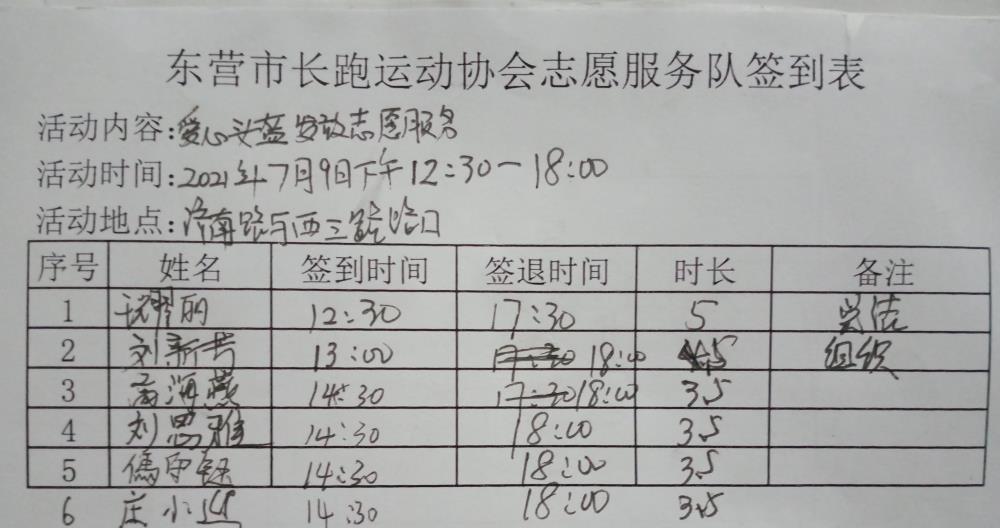 东营市长跑运动协会志愿服务队签到表
活动内容:爱心头盔发放志愿服务
活动时间:2021年7月9日下午12:30一18:00
活动地点:济南路与西三路路口
序号 姓名 签到时间 签退时间 时长 备注
1 丽 12:30 17:30 5
2 刘新 13:00 18:00 5 组织
3 海燕 14:30 18:00 3.5
4 刘思雅 14:30 18:00 3.5
5 14:30 18:00 3.5
6 庄小 14:30 18:00 3.5